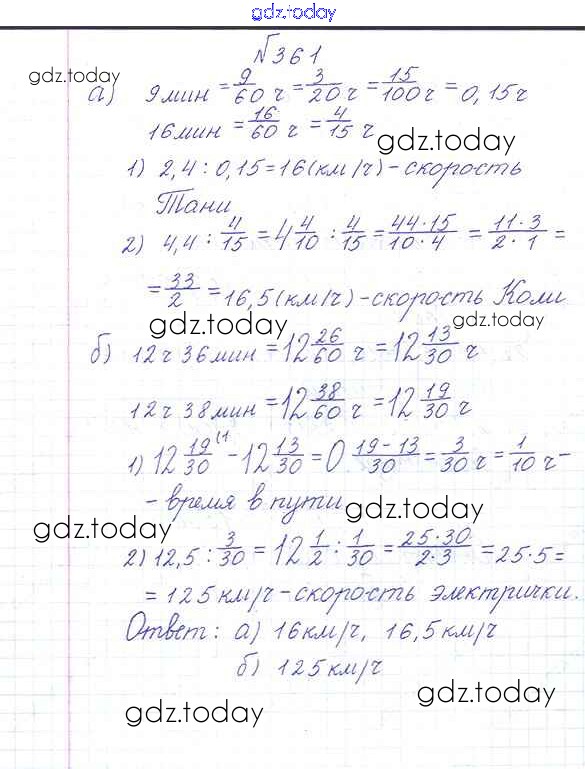 gdz.today
№361
gdz.today
а) 9 мин = 9/60 ч = 3/20 ч = 15/100 ч = 0,15 ч
16 мин = 16/60 ч = 4/15 ч
gdz.today
1) 2,4 : 0,15 = 16 (км/ч) - скорость
Тани
2) 4,4 : 4/15 = 4 4/10 : 4/15 = 44·15/10·4 = 11·3/2·1 =
= 33/2 = 16,5 (км/ч) - скорость Коли
gdz.today
gdz.today
б) 12 ч 36 мин = 12 26/60 ч = 12 13/30 ч
12 ч 38 мин = 12 38/60 ч = 12 19/30 ч
1) 12 19/30 (1 - 12 13/30 = 0 19-13/30 = 3/30 ч = 1/10 ч -
- время в пути
gdz.today
gdz.today
2) 12,5 : 3/30 = 12 1/2 : 1/30 = 25·30/2·3 = 25·5 =
= 125 км/ч - скорость электрички.
Ответ: а) 16 км/ч, 16,5 км/ч
б) 125 км/ч
gdz.today
gdz.today